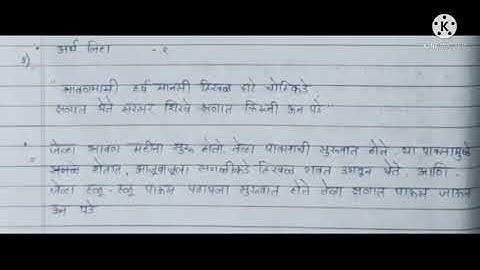 १) अर्थ लिहा -१
"श्रावणमासी हर्ष मानसी हिरवळ दाटे चोहिकडे,
क्षणात येते सरसर शिरवे क्षणात फिरुनी ऊन पडे."
= जेव्हा श्रावण महीना सुरू होतो, तेव्हा पावसाची सुरुवात होते, या पावसामुळे
सगळे शेतात, आजूबाजूला सगळीकडे हिरवळ गवत उगवून येते. आणि
जेव्हा हळू-हळू पाऊस पडायला सुरुवात होते तेव्हा क्षणात पाऊस जाऊन
ऊन पडे
KINEMASTER